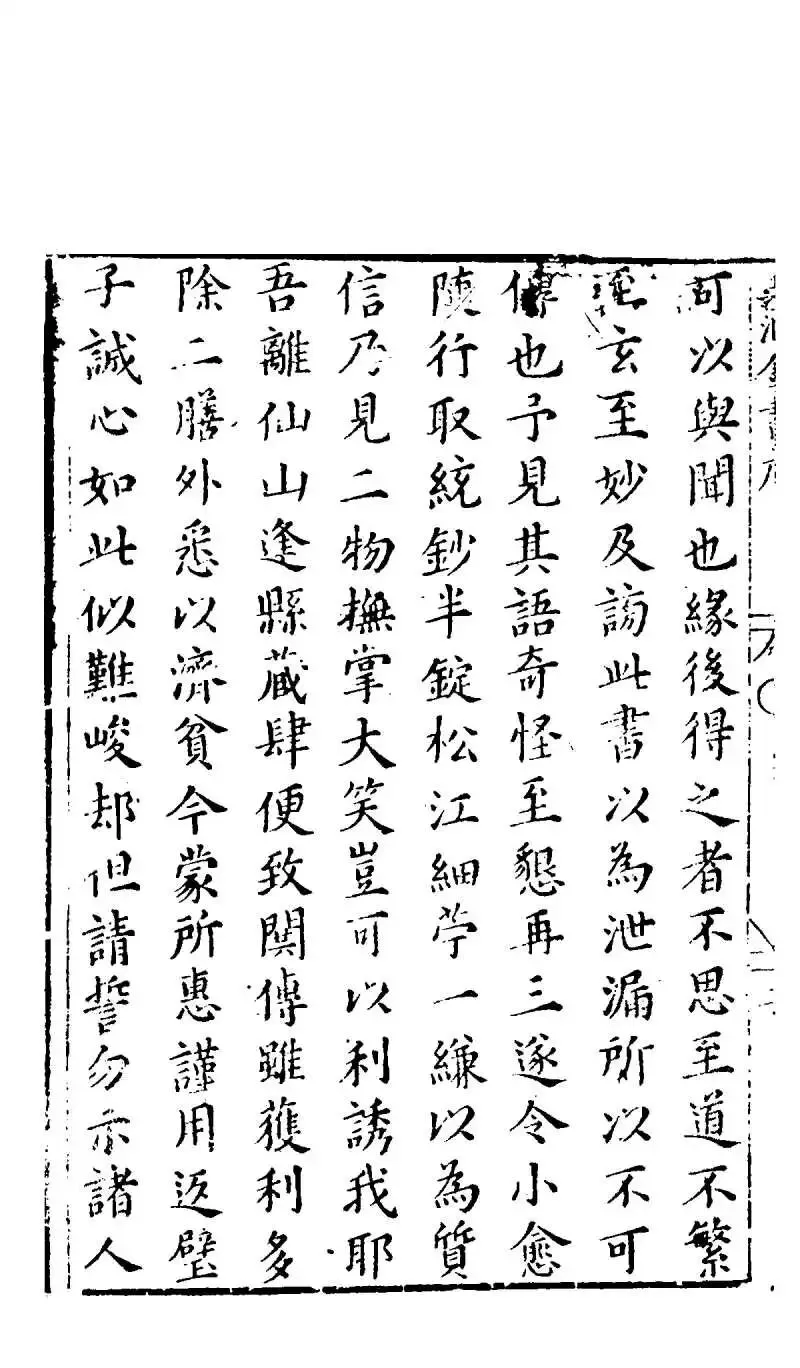 可以與聞也緣後得之者不思至道不繁
至玄至妙及謗此書以為泄漏所以不可
傳也予見其語奇怪至懇再三遂令小愈
隨行取統鈔半錠松江細苧一縑以為質
信乃見二物撫掌大笑豈可以利誘我耶
吾離仙山逢縣藏肆便致関傳雖獲利多
除二膳外悉以濟貧今蒙所惠謹用返璧
子誠心如此似難峻却但請誓勿示諸人